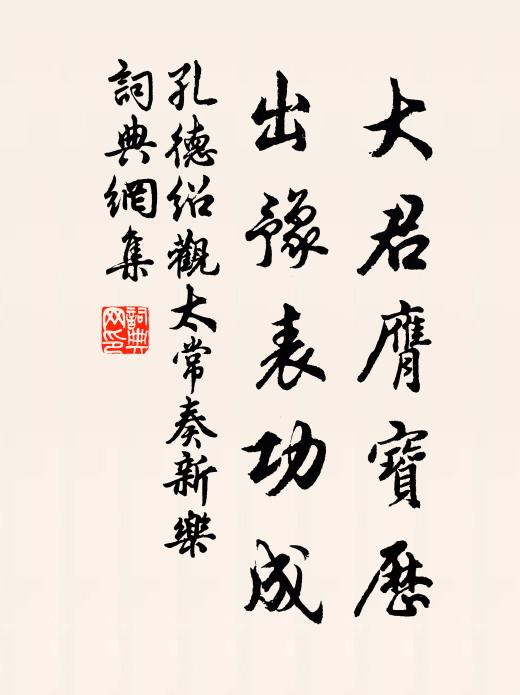 大君膺寶歷
出豫表功成
孔德紹觀太常奏新樂
詞典網集
詞典网印